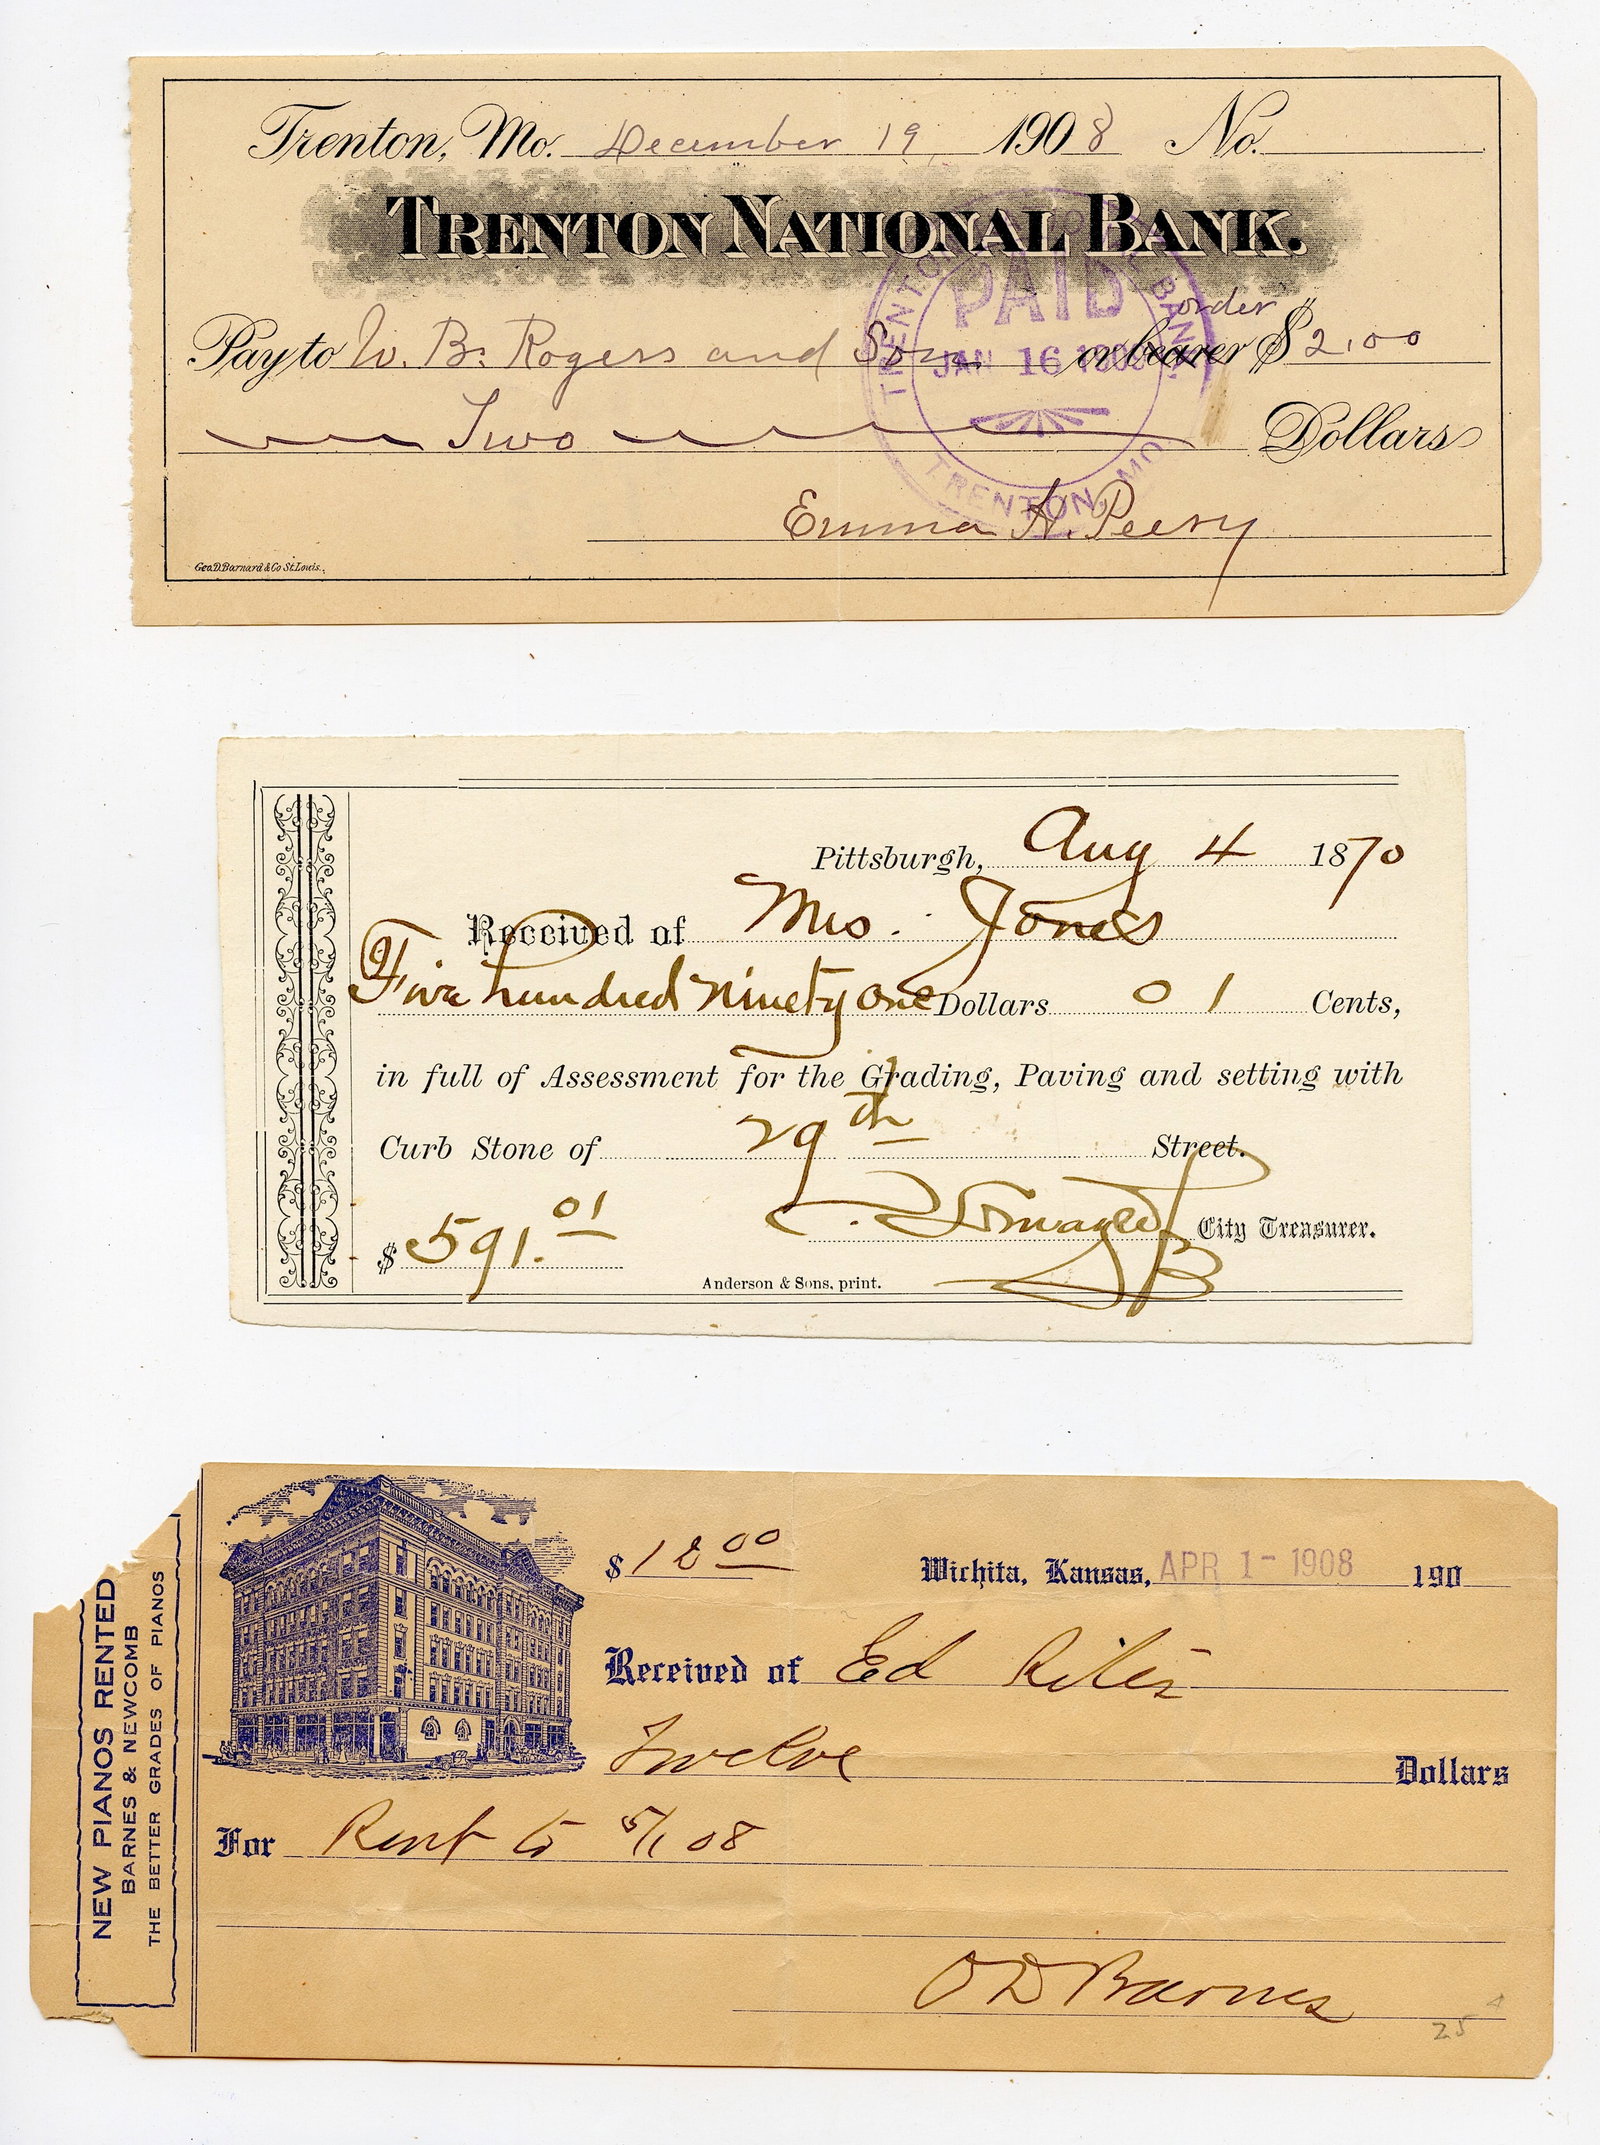 Trenton, Mo. December 19, 1908 No.
TRENTON NATIONAL BANK.
order
Pay to W. B. Rogers and Son or bearer $2.00
Two Dollars
Emma H. Peery
Geo. D. Barnard & Co St. Louis.
TRENTON NATIONAL BANK,
PAID
JAN 16 1909
TRENTON, MO.
Pittsburgh, Aug 4 1870
Received of Mrs. Jones
Five hundred ninety one Dollars 01 Cents,
in full of Assessment for the Grading, Paving and setting with
Curb Stone of 29th Street.
$591.01 City Treasurer.
Anderson & Sons, print.
NEW PIANOS RENTED
BARNES & NEWCOMB
THE BETTER GRADES OF PIANOS
$12 00 Wichita, Kansas, APR 1- 1908 190
Received of Ed
Twelve Dollars
For Rent to 5/1 08
O D Barnes
25